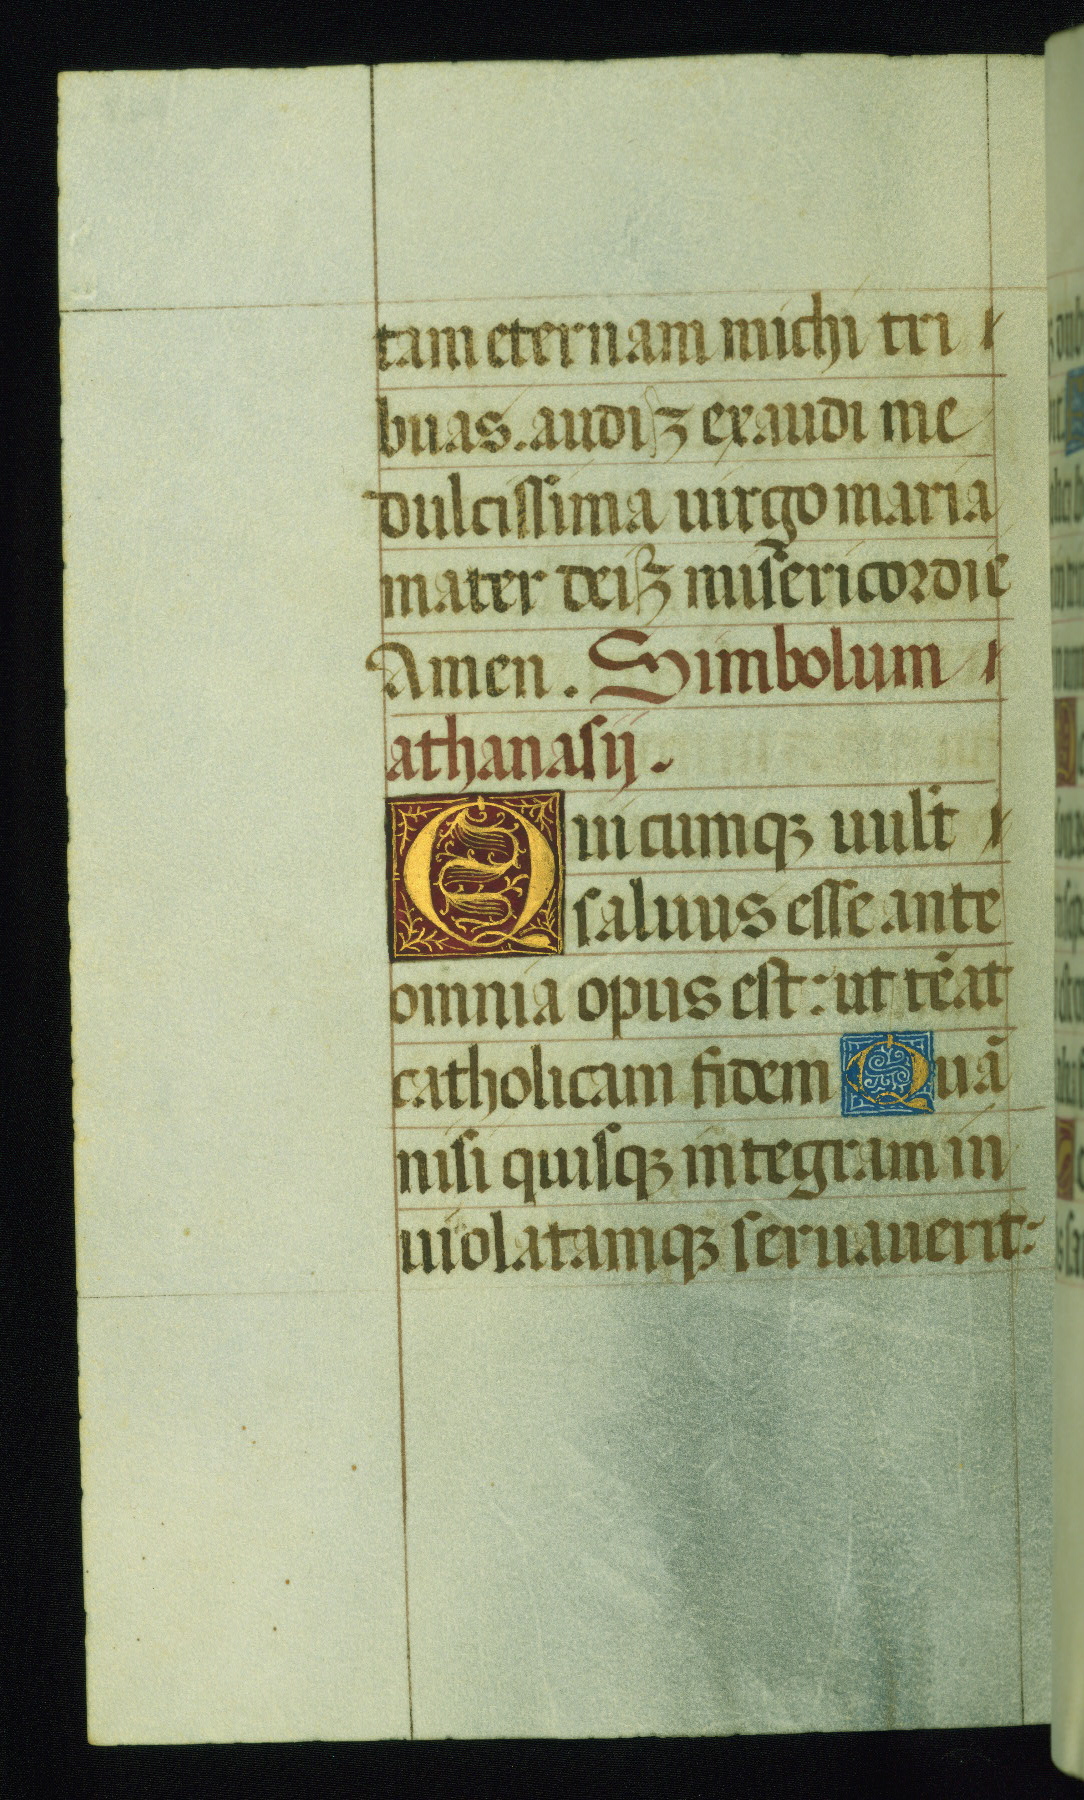 tam eternam michi tri
buas. audi ⁊ exaudi me
dulcissima uirgo maria
mater dei ⁊ misericordie
Amen. Simbolum
athanasij.
Quicumqꝫ uult
saluus esse ante
omnia opus est: ut teāt
catholicam fidem Quā
nisi quisqꝫ integram in
uiolatamqꝫ seruauerit: